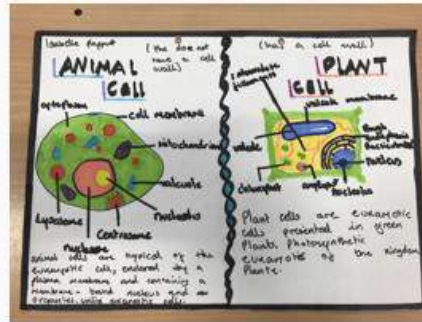 Isabelle
(the do not have a cell wall)
ANIMAL
CELL
cytoplasm
cell membrane
mitochondrion
vacuole
nucleolus
Lysosome
nucleus
Centrosome
animal cells are typical of the
eukaryotic cell, enclosed by a
plasma membrane and containing a
membrane-bound nucleus and
organelles. unlike eukaryotic cells.
(has a cell wall)
PLANT
CELL
vacuole membrane
vacuole
nucleus
nucleolus
Plant cells are eukaryotic
cells presented in green
Plants, Photosynthetic
eukaryotes of the kingdom
Plante.